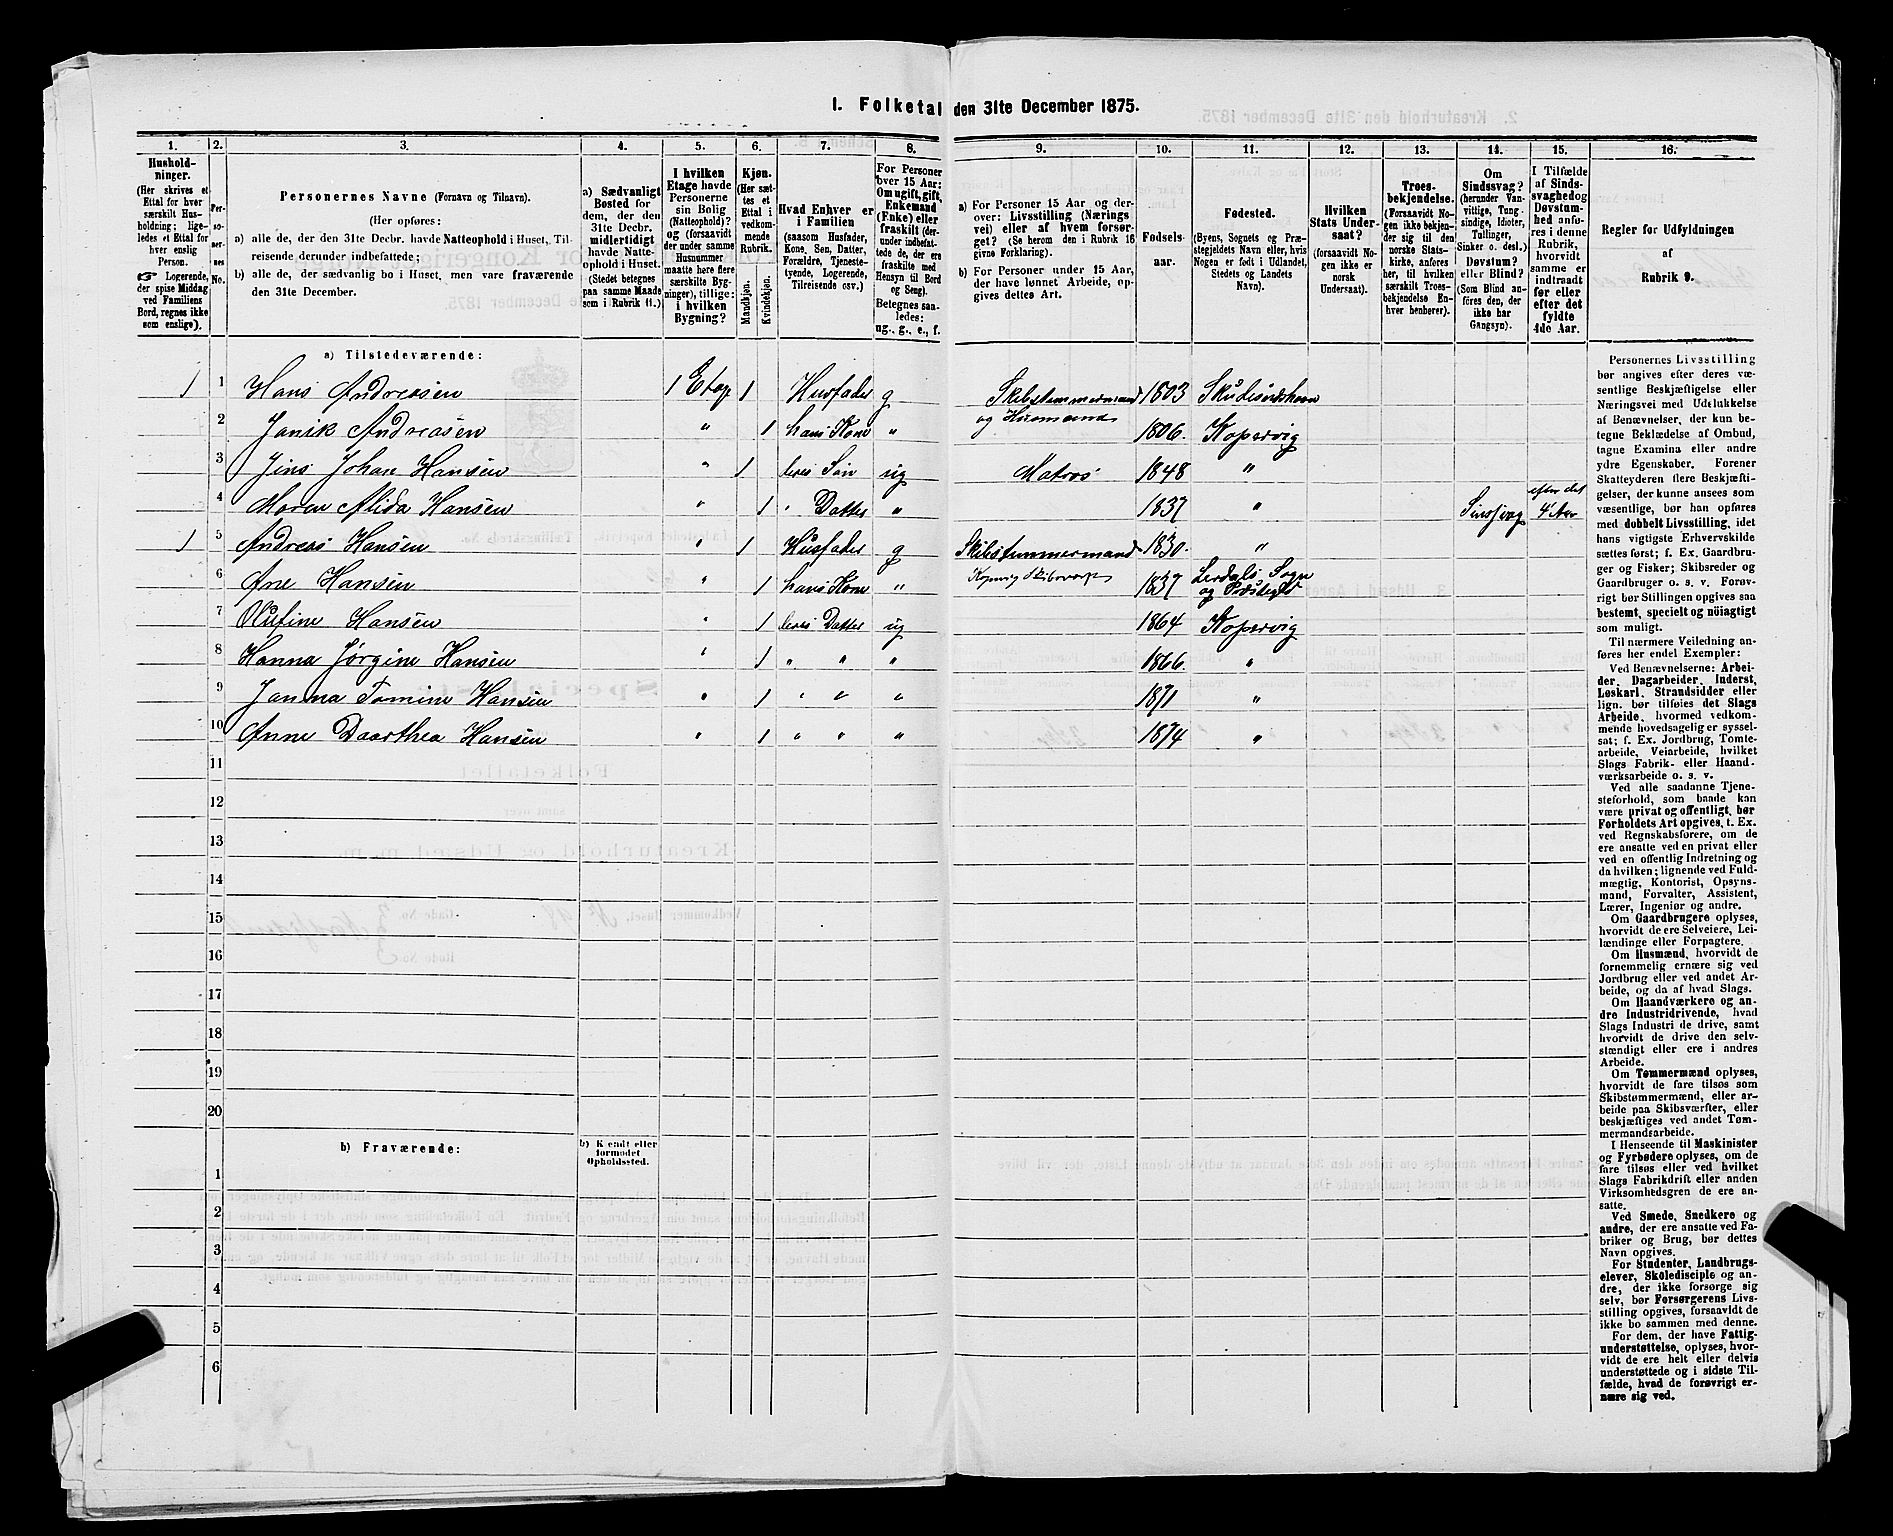 1. Folketal den 31te December 1875.
1. 2. 3. 4. 5. 6. 7. 8. 9. 10. 11. 12. 13. 14. 15. 16.
Husholdninger.
(Her skrives et
Ettal for hver
særskilt Husholdning;
ligeledes
et Ettal for
hver enslig
Person.
☞ Logerende,
der spise Middag
ved Familiens
Bord, regnes ikke
som enslige).
Personernes No.
Personernes Navne (Fornavn og Tilnavn).
(Her opføres:
a) alle de, der den 31te Decbr. havde Natteophold i Huset, Tilreisende
derunder indbefattede;
b) alle de, der sædvanlig bo i Huset, men vare fraværende
den 31te December.
a) Sædvanligt
Bosted for
dem, der den
31te Decbr.
midlertidigt
havde Natteophold
i Huset.
(Stedet betegnes
paa samme Maade
som i Rubrik 11.)
I hvilken
Etage havde
Personerne
sin Bolig
(Natteophold)?
og (forsaavidt
der under samme
Husnummer
maatte høre flere
særskilte Bygninger),
tillige:
i hvilken
Bygning?
Kjøn.
(Her sættes
et
Ettal i
vedkommende
Rubrik.
Mandkjøn.
Kvindekjøn.
Hvad Enhver er
i Familien
(saasom Husfader,
Kone, Søn, Datter,
Forældre, Tjenestetyende,
Logerende,
Tilreisende osv.)
For Personer
over 15 Aar:
Om ugift, gift,
Enkemand
(Enke) eller
fraskilt (derunder
indbefattede
de, der ere
fraskilte med
Hensyn til Bord
og Seng).
Betegnes saaledes:
ug., g., e., f.
a) For Personer 15 Aar og derover:
Livsstilling (Næringsvei)
eller af hvem forsørget?
(Se herom den i Rubrik 16
givne Forklaring).
b) For Personer under 15 Aar,
der have lønnet Arbeide, opgives
dettes Art.
Fødselsaar.
Fødested.
(Byens, Sognets og Præstegjeldets
Navn eller, hvis
Nogen er født i Udlandet,
Stedets og Landets
Navn).
Hvilken
Stats Undersaat?
(forsaavidt Nogen
ikke er
norsk
Undersaat).
Troesbekjendelse.
(Forsaavidt Nogen
ikke bekjender
sig til den
norske Statskirke,
anføres
her, til hvilken
særskilt Troesbekjendelse
Enhver
henhører).
Om
Sindssvag?
(herunder Vanvittige,
Tungsindige,
Idioter,
Tullinger,
Sinker o. desl.)
Døvstum?
eller Blind?
(Som Blind anføres
den, der
ikke har
Gangsyn).
I Tilfælde
af Sindssvaghed
og
Døvstumhed
anføres
i denne
Rubrik,
hvorvidt
samme er
indtraadt
før eller
efter det
fyldte
4de Aar.
Regler for Udfyldningen
af
Rubrik 9.
a) Tilstedeværende:
1 1 Hans Andreasen 1 Etage 1 Husfader g Skibstømmermand og Husmand 1803 Skudesnæshavn
2 Janik Andreasen " 1 hans Kone " 1806. Kopervig
3 Jens Johan Hansen " 1 deres Søn ug Matros 1848 "
4 Maren Alida Hansen " 1 " Datter " 1837 " Sinssvag efter det 4de Aar
1 5 Andreas Hansen " 1 Husfader g Skibstømmermand 1830. "
6 Ane Hansen " 1 hans Kone " Kopervig Skibsværft 1837 Lerdals Sogn og Præstegjeld
7 Olufine Hansen " 1 deres Datter ug 1864 Kopervig
8 Hanna Jørgine Hansen " 1 " " " 1866. "
9 Janna Tomine Hansen " 1 " " " 1871 "
10 Anne Daarthea Hansen " 1 " " " 1874 "
11
12
13
14
15
16
17
18
19
20
b) Fraværende:
b) Kjendt eller
formodet
Opholdssted.
1
2
3
4
5
6
Personernes Livsstilling
bør angives efter deres væsentlige
Beskjæftigelse eller
Næringsvei med Udelukkelse
af Benævnelser, der kun betegne
Beklædelse af Ombud,
tagne Examina eller andre
ydre Egenskaber. Forener
Skatteyderen flere Beskjæftigelser,
der kunne ansees som
væsentlige, bør han opføres
med dobbelt Livsstilling, idet
hans vigtigste Erhvervskilde
sættes først; f. Ex. Gaardbruger
og Fisker; Skibsreder og
Gaardbruger o. s. v. Forøvrigt
bør Stillingen opgives saa
bestemt, specielt og nøiagtigt
som muligt.
Til nærmere Veiledning anføres
her endel Exempler:
Ved Benævnelserne: Arbeider,
Dagarbeider, Inderst,
Løskarl, Strandsidder eller
lign. bør tilføies det Slags
Arbeide, hvormed vedkommende
hovedsagelig er sysselsat;
f. Ex. Jordbrug, Tomtearbeide,
Veiarbeide, hvilket
Slags Fabrik- eller Haandværksarbeide
o. s. v.
Ved alle saadanne Tjenesteforhold,
som baade kan
være privat og offentligt, bør
Forholdets Art opgives, t. Ex.
ved Regnskabsførere, om de
ere ansatte ved en privat eller
ved en offentlig Indretning og
da hvilken; lignende ved Fuldmægtig,
Kontorist, Opsynsmand,
Forvalter, Assistent,
Lærer, Ingeniør og andre.
Om Gaardbrugere oplyses,
hvorvidt de ere Selveiere, Leilændinge
eller Forpagtere.
Om Husmænd, hvorvidt de
fornemmelig ernære sig ved
Jordbrug eller ved andet Arbeide,
og da af hvad Slags.
Om Haandværkere og andre
Industridrivende, hvad
Slags Industri de drive, samt
hvorvidt de drive den selvstændigt
eller ere i andres
Arbeide.
Om Tømmermænd oplyses,
hvorvidt de fare tilsøs som
Skibstømmermænd, eller arbeide
paa Skibsværfter, eller
beskjæftiges ved andet Tømmermandsarbeide.
I Henseende til Maskinister
og Fyrbødere oplyses, om de
fare tilsøs eller ved hvilket
Slags Fabrikdrift eller anden
Virksomhedsgren de ere ansatte.
Ved Smede, Snedkere og
andre, der ere ansatte ved Fabriker
og Brug, bør dettes
Navn opgives.
For Studenter, Landbrugselever,
Skoledisciple og andre,
der ikke forsørge sig
selv, bør Forsørgerens Livsstilling
opgives, forsaavidt de
ikke bo sammen med denne.
For dem, der have Fattigunderstøttelse,
oplyses, hvorvidt
de ere helt eller delvis
understøttede og i sidste Tilfælde,
hvad de forøvrigt ernære
sig ved.